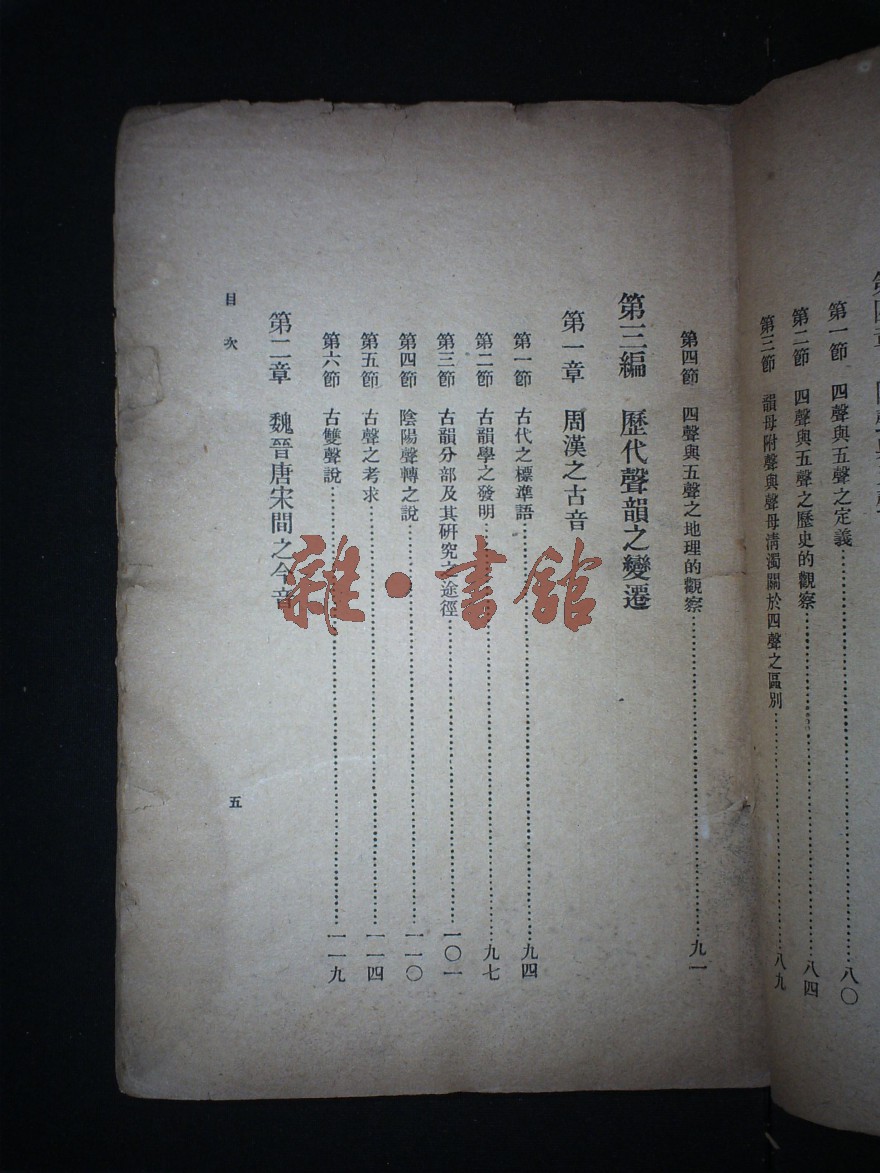 第一節　四聲與五聲之定義……八〇
第二節　四聲與五聲之歷史的觀察……八四
第三節　韻母附聲與聲母淸濁關於四聲之區別……八九
第四節　四聲與五聲之地理的觀察……九一
第三編　歷代聲韻之變遷
第一章　周漢之古音
第一節　古代之標準語……九四
第二節　古韻學之發明……九七
第三節　古韻分部及其硏究之途徑……一〇一
第四節　陰陽聲轉之說……一一〇
第五節　古聲之考求……一一四
第六節　古雙聲說……一一九
第二章　魏晉唐宋間之今音
目次
五
雜·書館